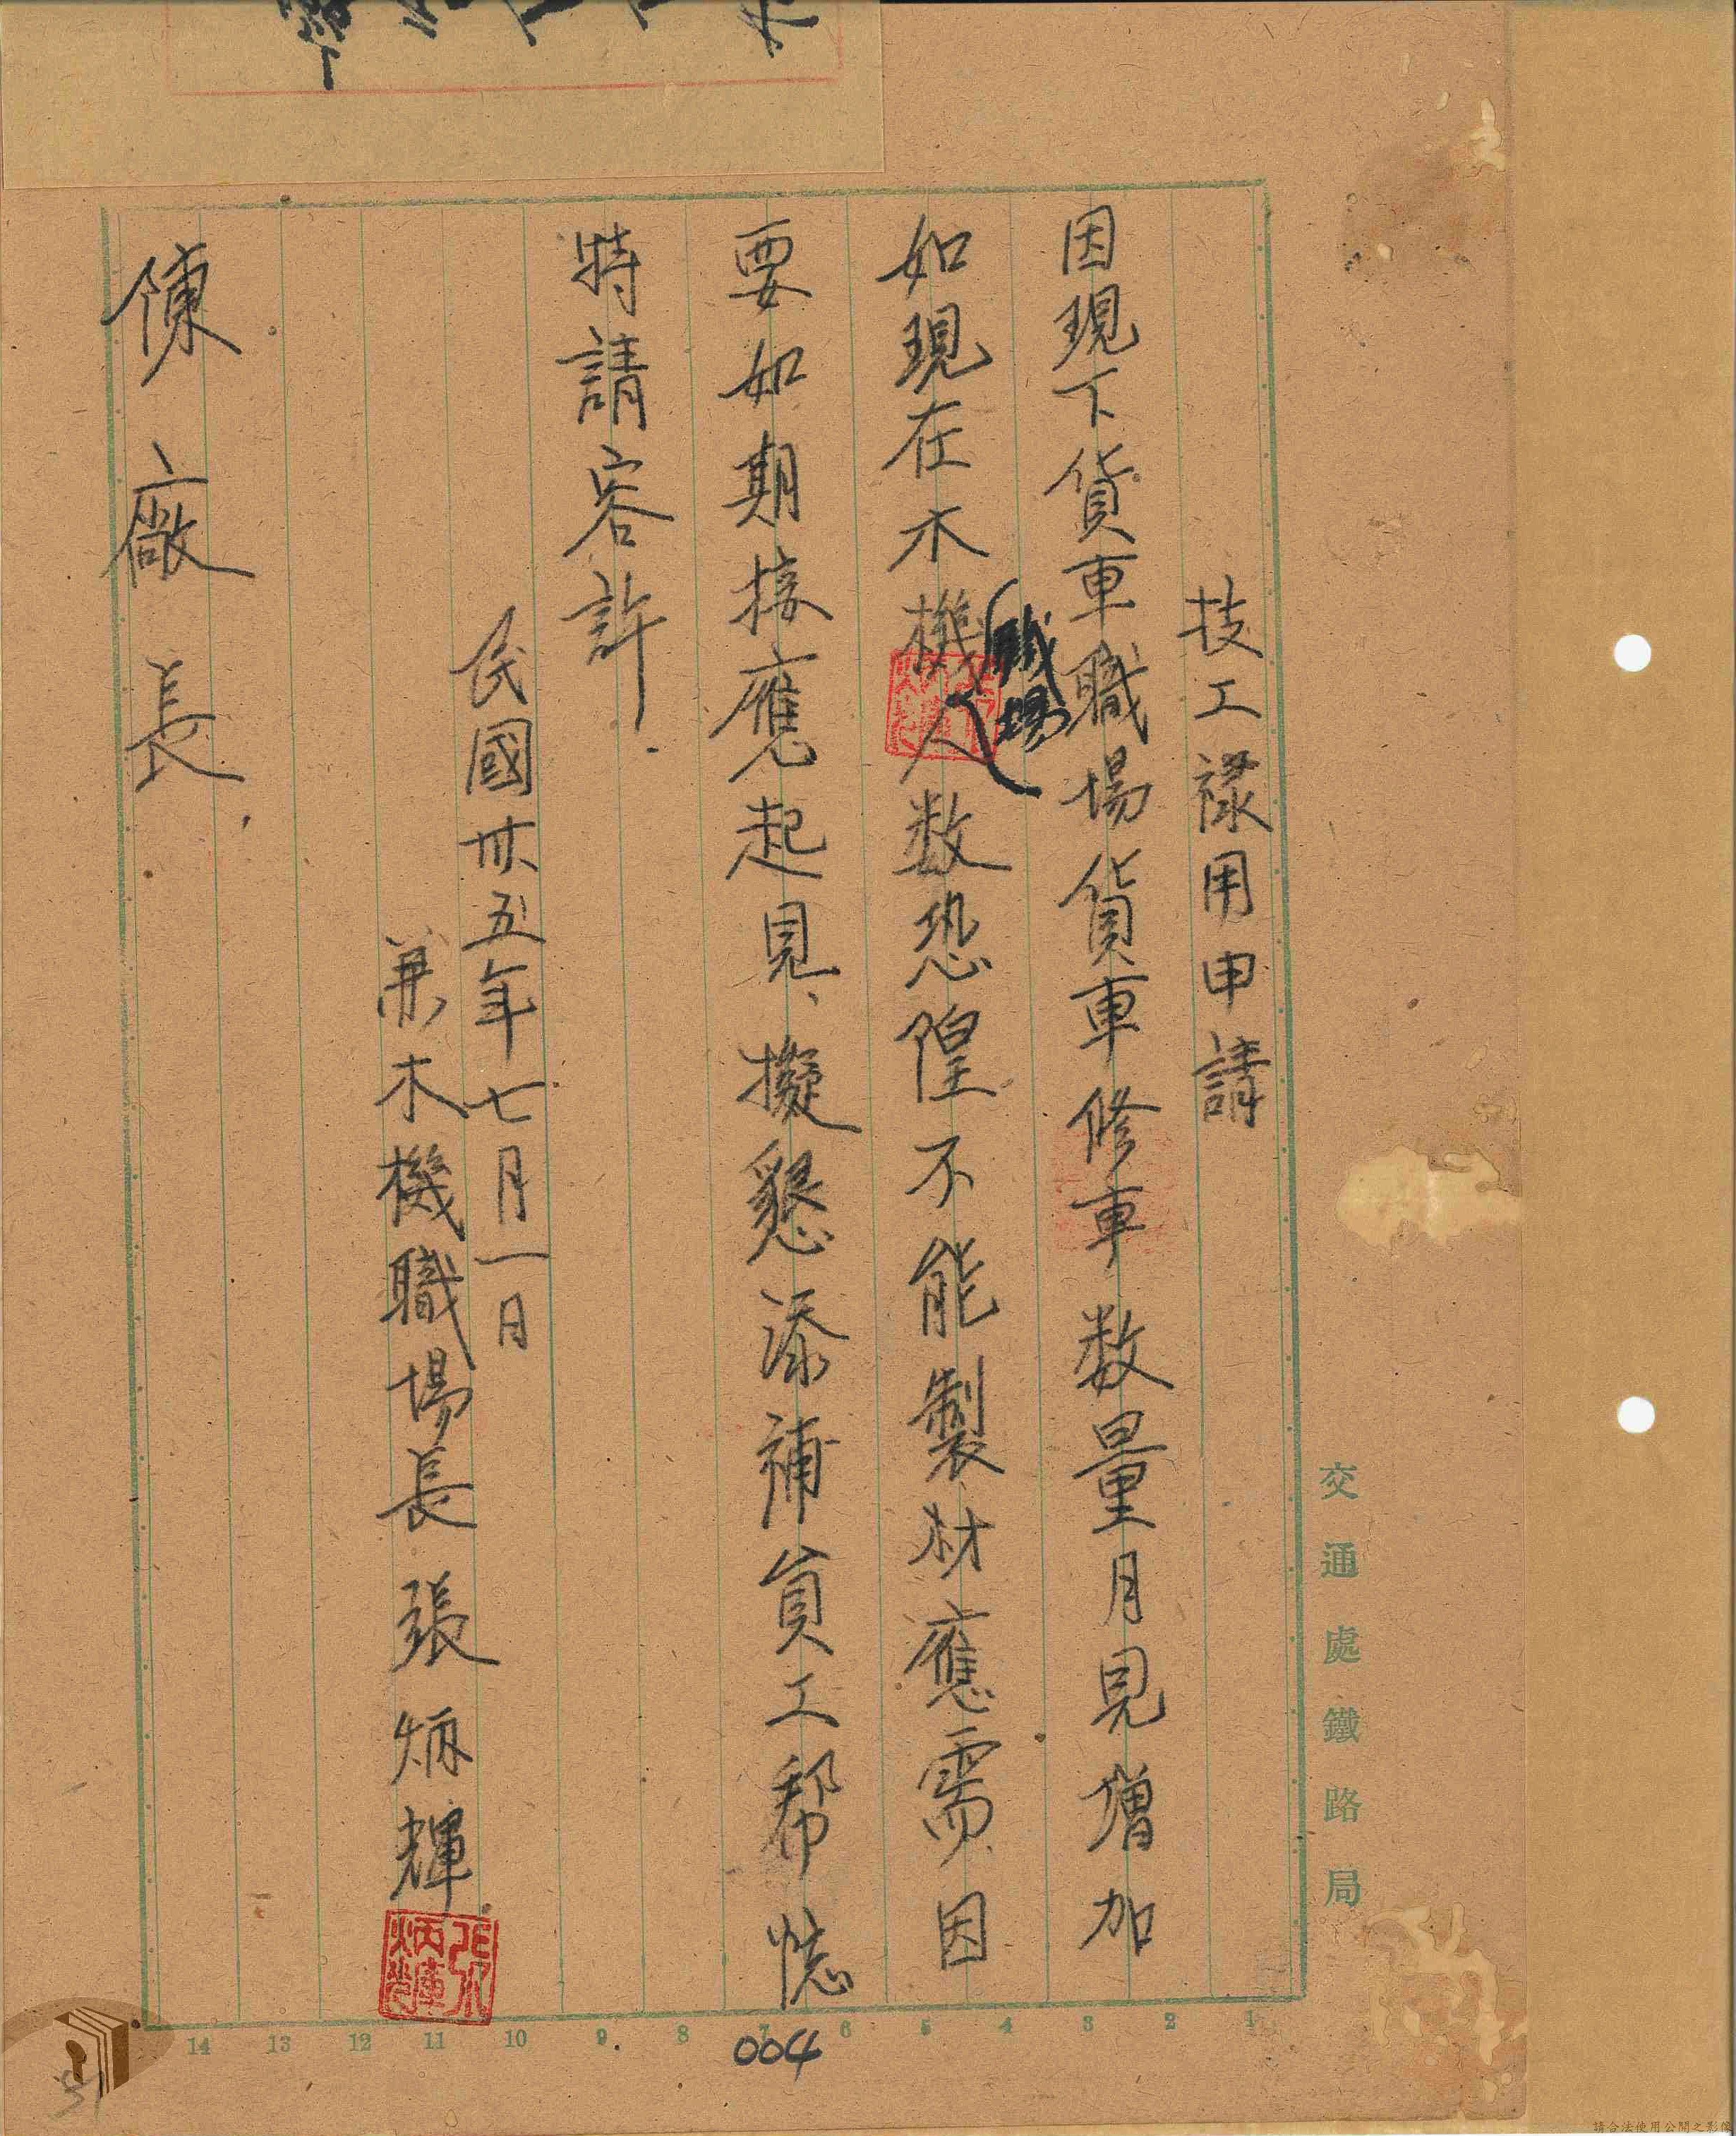 技工祿用申請
因現下貨車職場貨車修車数量月見增加
如現在木機職場人数恐惶不能製材應需因
要如期接應起見、擬懇添補員工幫忙
特請容許.
民國卅五年七月一日
兼木機職場長張炳輝
張炳輝
陳廠長.
交通處鐵路局
14 13 12 11 10 9 8 7 6 5 4 3 2 1
004
請合法使用公開之影像